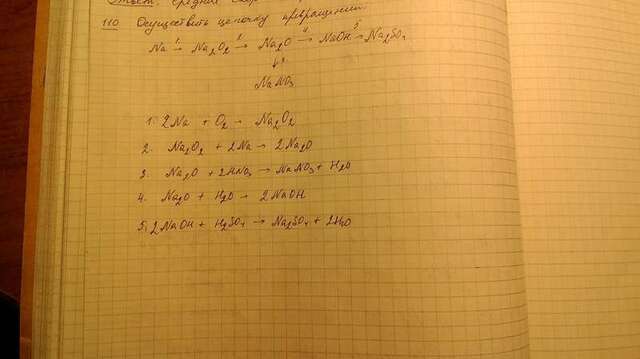 Ответ: средняя скор
110 Осуществить цепочку превращений
Na 1→ Na₂O₂ 2→ Na₂O 4→ NaOH 5→ Na₂SO₄
↓3
NaNO₃
1. 2Na + O₂ → Na₂O₂
2. Na₂O₂ + 2Na → 2Na₂O
3. Na₂O + 2HNO₃ → NaNO₃ + H₂O
4. Na₂O + H₂O → 2NaOH
5. 2NaOH + H₂SO₄ → Na₂SO₄ + 2H₂O